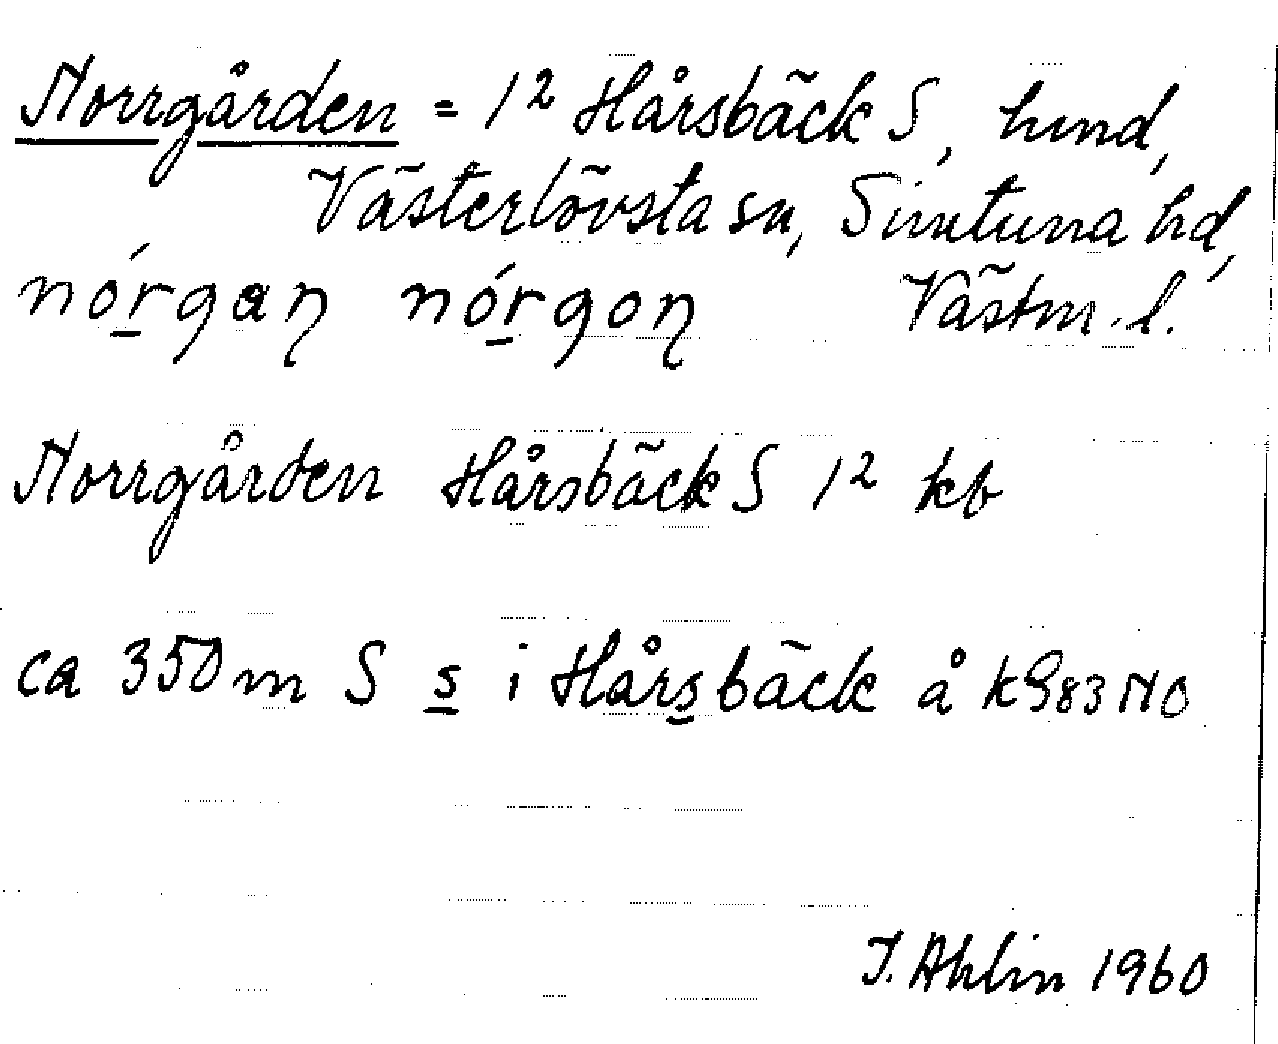 Norrgården = 1² Hårsbäck S, hmd,
Västerlövsta sn, Simtuna hd,
nórgan nórgon Västm. l.
Norrgården Hårsbäck S 1² kb
ca 350 m S s i Hårsbäck å kg 83 NO
I. Ahlin 1960